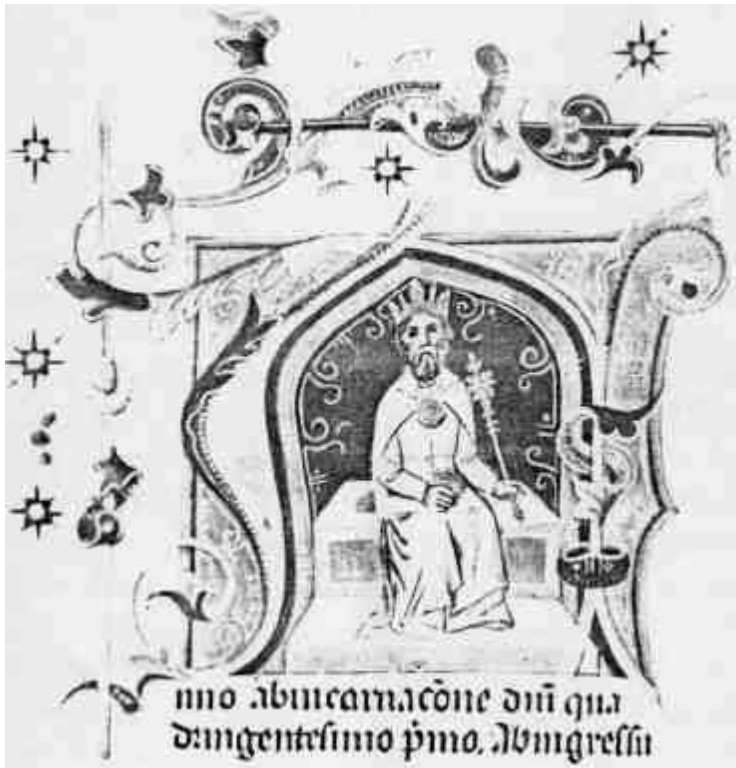 nno abincarnacōne dn̄i qua
dringentesimo p̄mo. Abingressu